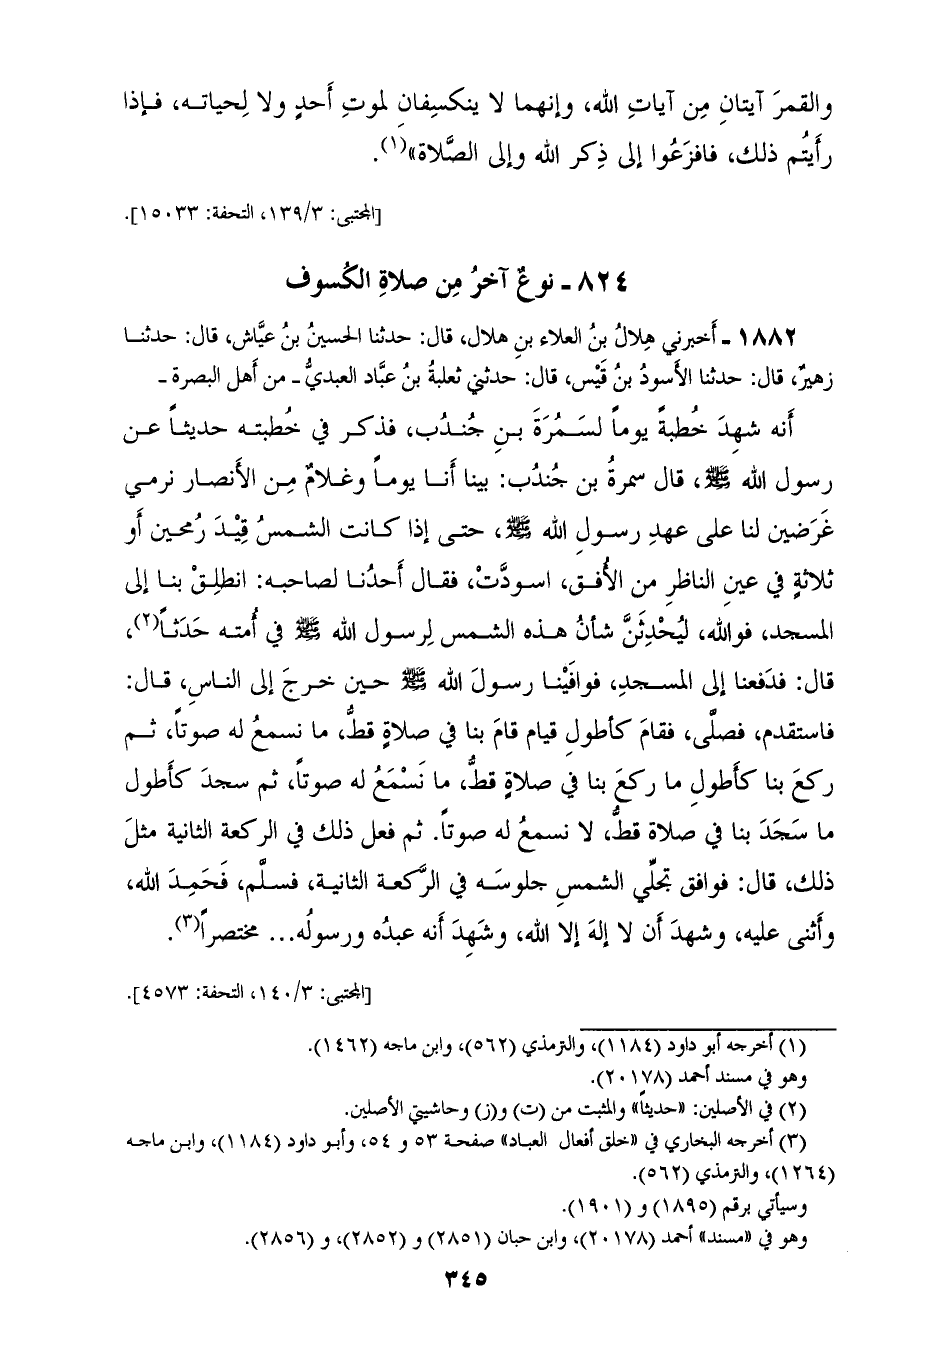 والقمرَ آيتانِ مِن آياتِ الله، وإنهما لا ينكسِفانِ لموتِ أَحدٍ ولا لِحياتـه، فـإذا
رأَيتُم ذلك، فافزَعُوا إلى ذِكر الله وإلى الصَّلاة»(١).
[المجتبى: ١٣٩/٣، التحفة: ١٥٠٣٣].
٨٢٤ - نوعٌ آخرُ مِن صلاةِ الكُسوف
١٨٨٢ - أَخبرني هِلالُ بنُ العلاء بنِ هلال، قال: حدثنا الحسينُ بنُ عيَّاش، قال: حدثنـا
زهيرٌ، قال: حدثنا الأسودُ بنُ قَيْس، قال: حدثني ثعلبةُ بنُ عبَّاد العبديُّ - من أهل البصرة -
أَنه شهِدَ خُطبةً يوماً لسَـمُرَةَ بـنِ جُنـدُب، فذكـر في خُطبتـه حديثـاً عـن
رسول الله ﷺ، قال سمرةُ بن جُندُب: بينا أَنـا يومـاً وغـلامٌ مِـن الأَنصـار نرمـي
غَرَضين لنا على عهدِ رسـولِ الله ﷺ، حتـى إذا كـانت الشـمسُ قِيْـدَ رُمحـين أَو
ثلاثةٍ في عينِ الناظرِ من الأُفـق، اسـودَّتْ، فقـال أَحدُنـا لصاحبـه: انطلِـقْ بنـا إلى
المسجد، فوالله، ليُحْدِثَنَّ شأنُ هـذه الشـمس لِرسـول الله ﷺ في أُمتـه حَدَثـاً(٢)،
قال: فدَفعنا إلى المسـجدِ، فوافَيْنـا رسـولَ الله ﷺ حـين خـرجَ إلى النـاسِ، قـال:
فاستقدم، فصلَّى، فقامَ كأَطولِ قيام قامَ بنا في صلاةٍ قطُّ، ما نسمعُ له صوتاً، ثـم
ركعَ بنا كأَطولِ ما ركعَ بنا في صلاةٍ قطُّ، ما نَسْمَعُ له صوتاً، ثم سجدَ كأَطول
ما سَجَدَ بنا في صلاة قطُّ، لا نسمعُ له صوتاً. ثم فعل ذلك في الركعة الثانية مثلَ
ذلك، قال: فوافق تجلِّي الشمسِ جلوسَـه في الرَّكعـة الثانيـة، فسـلَّم، فَحَمِـدَ الله،
وأَثنى عليه، وشهدَ أَن لا إلهَ إلا الله، وشَهِدَ أَنه عبدُه ورسولُه... مختصراً(٣).
[المجتبى: ١٤٠/٣، التحفة: ٤٥٧٣].
(١) أخرجه أبو داود (١١٨٤)، والترمذي (٥٦٢)، وابن ماجه (١٤٦٢).
وهو في مسند أحمد (٢٠١٧٨).
(٢) في الأصلين: «حديثاً» والمثبت من (ت) و(ز) وحاشيتي الأصلين.
(٣) أخرجه البخاري في «خلق أفعال العباد» صفحة ٥٣ و ٥٤، وأبو داود (١١٨٤)، وابـن ماجـه
(١٢٦٤)، والترمذي (٥٦٢).
وسيأتي برقم (١٨٩٥) و (١٩٠١).
وهو في «مسند» أحمد (٢٠١٧٨)، وابن حبان (٢٨٥١) و (٢٨٥٢)، و (٢٨٥٦).
٣٤٥